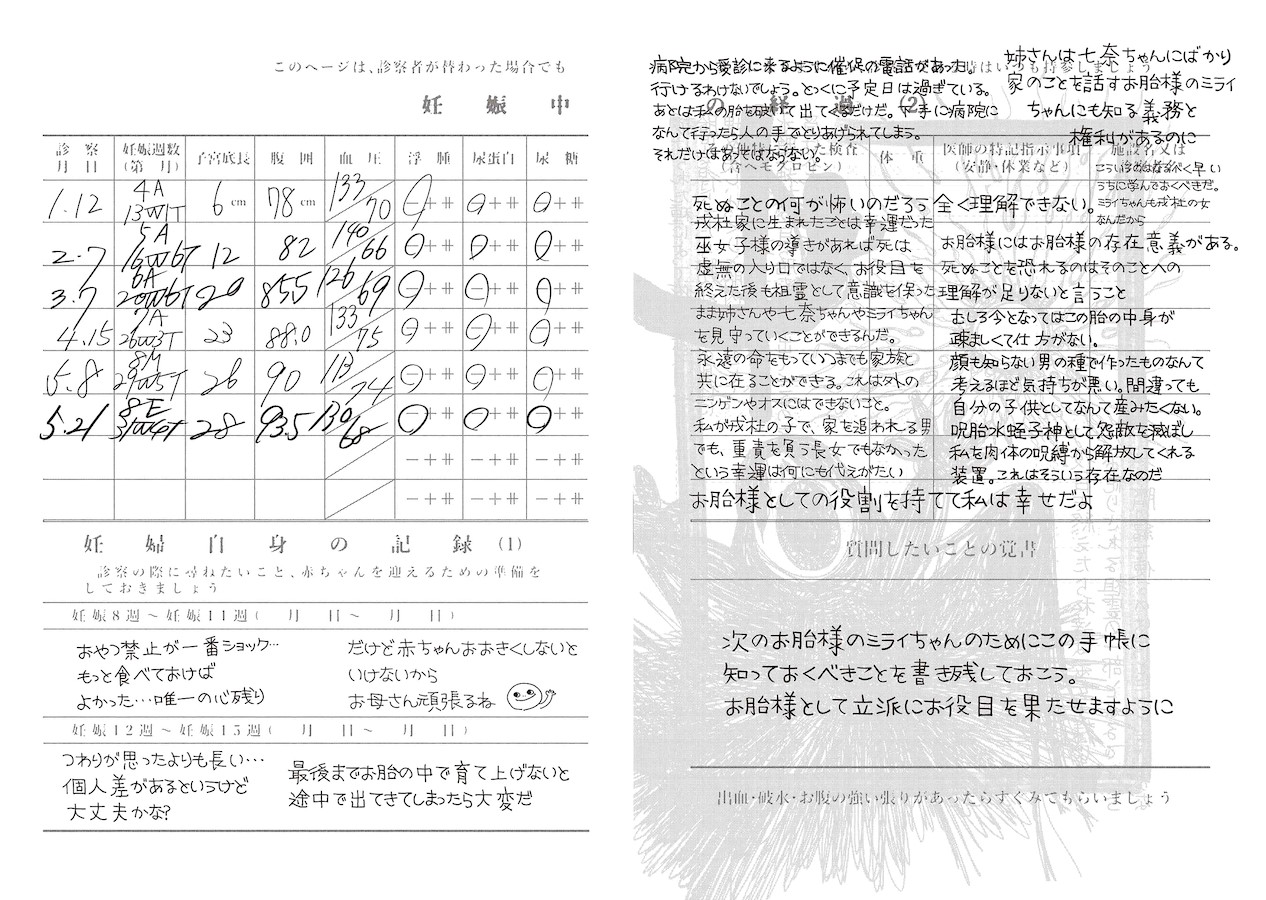 このページは、診察者が替わった場合でも
妊娠中
診察月日 妊娠週数(第 月) 子宮底長 腹囲 血圧 浮腫 尿蛋白 尿糖
1.12 4A 13W1T 6cm 78cm 133/70 - + ⧺ - + ⧺ - + ⧺
2.7 5A 16W6T 12 82 140/66 - + ⧺ - + ⧺ - + ⧺
3.7 6A 20W6T 20 85.5 126/69 - + ⧺ - + ⧺ - + ⧺
4.15 7A 26W3T 23 88.0 133/75 - + ⧺ - + ⧺ - + ⧺
5.8 8M 29W5T 26 90 113/74 - + ⧺ - + ⧺ - + ⧺
5.21 8E 28 93.5 130/68 - + ⧺ - + ⧺ - + ⧺
- + ⧺ - + ⧺ - + ⧺
- + ⧺ - + ⧺ - + ⧺
妊婦自身の記録(1)
診察の際に尋ねたいこと、赤ちゃんを迎えるための準備を
しておきましょう
妊娠8週~妊娠11週( 月 日~ 月 日)
おやつ禁止が一番ショック…
もっと食べておけば
よかった…唯一の心残り
だけど赤ちゃんおおきくしないと
いけないから
お母さん頑張るね
妊娠12週~妊娠15週( 月 日~ 月 日)
つわりが思ったよりも長い…
個人差があるというけど
大丈夫かな?
最後までお胎の中で育て上げないと
途中で出てきてしまったら大変だ
病院から受診に来るように催促の電話があった。
行けるわけないでしょう。とっくに予定日は過ぎている。
あとは私の胎を破って出てくるだけだ。下手に病院に
なんて行ったら人の手でとりあげられてしまう。
それだけはあってはならない。
時はいつも持参しましょう
の経過(2)
姉さんは七奈ちゃんにばかり
家のことを話すお胎様のミライ
ちゃんにも知る義務と
権利があるのに
その他特に行った検査(含ヘモグロビン) 体重 医師の特記指示事項(安静・休業など) 施設名又は
こういうのはなるべく早い
うちに学んでおくべきだ。
ミライちゃんも戎杜の女
なんだから
死ぬことの何が怖いのだろう全く理解できない。
戎杜家に生まれたことは幸運だった
巫女子様の導きがあれば死は
虚無の入り口ではなく、お役目を
終えた後も祖霊として意識を保った
まま姉さんや七奈ちゃんやミライちゃん
を見守っていくことができるんだ。
永遠の命をもっていつまでも家族と
共に在ることができる。これは外の
ニンゲンやオスにはできないこと。
私が戎杜の子で、家を追われる男
でも、重責を負う長女でもなかった
という幸運は何にも代えがたい
お胎様にはお胎様の存在意義がある。
死ぬことを恐れるのはそのことへの
理解が足りないと言うこと
むしろ今となってはこの胎の中身が
疎ましくて仕方がない。
顔も知らない男の種で作ったものなんて
考えるほど気持ちが悪い。間違っても
自分の子供としてなんて産みたくない。
呪胎水蛭子神として怨敵を滅ぼし
私を肉体の呪縛から解放してくれる
装置。これはそういう存在なのだ
お胎様としての役割を持てて私は幸せだよ
質問したいことの覚書
次のお胎様のミライちゃんのためにこの手帳に
知っておくべきことを書き残しておこう。
お胎様として立派にお役目を果たせますように
出血・破水・お腹の強い張りがあったらすぐみてもらいましょう